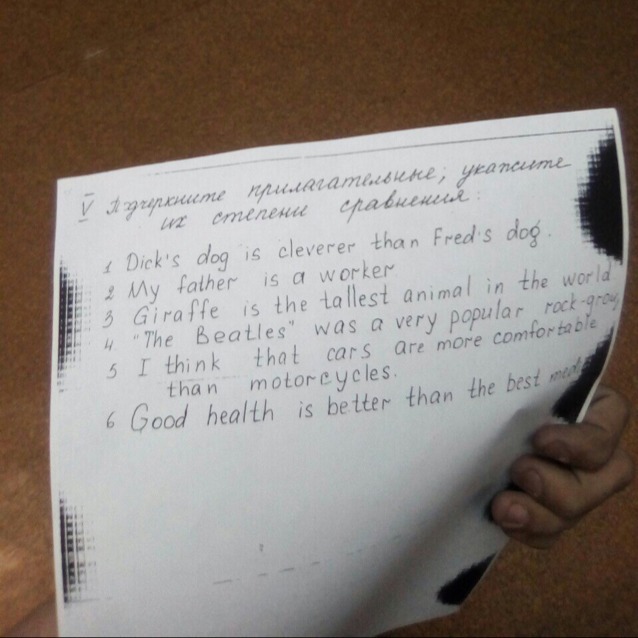 V Подчеркните прилагательные, укажите
их степени сравнения:
1 Dick's dog is cleverer than Fred's dog.
2 My father is a worker
3 Giraffe is the tallest animal in the world
4 "The Beatles" was a very popular rock-group,
5 I think that cars are more comfortable
than motorcycles.
6 Good health is better than the best